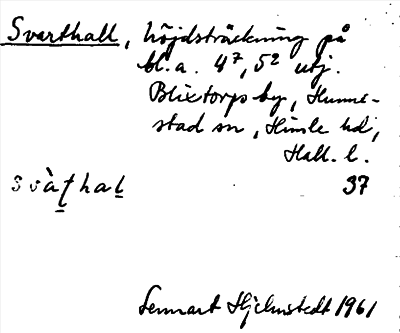 Svarthall, höjdsträckning på
bl.a. 4⁷, 5² utj.
Blixtorps by, Hunne-
stad sn, Himle hd,
Hall. l.
svàt̲hal̲ 37
Lennart Hjelmstedt 1961